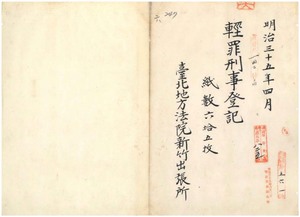 明治三十五年四月
輕罪刑事登記
紙數六拾五枚
臺北地方法院新竹出張所